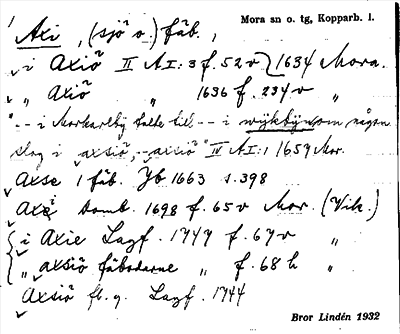 Axi, (sjö o.) fäb.,
Mora sn o. tg, Kopparb. l.
i Axiö II AI:3 f. 52 v } 1634 Mora.
" Axiö " 1636 f. 234 v "
"-- i Morkarlby -- i wijkbyn som någon
slag i axsiö, -- axsiö" IV AI:1 1659 Mor.
Axse 1 fäb. Jb 1663 s. 398
Axe domb. 1698 f. 65 v Mor. (Vik.)
i Axie Lagf. 1747 f. 67 v "
" axsiö fäbodarne " f. 68 h "
Axsiö fl. g. Lagf. 1744
Bror Lindén 1932